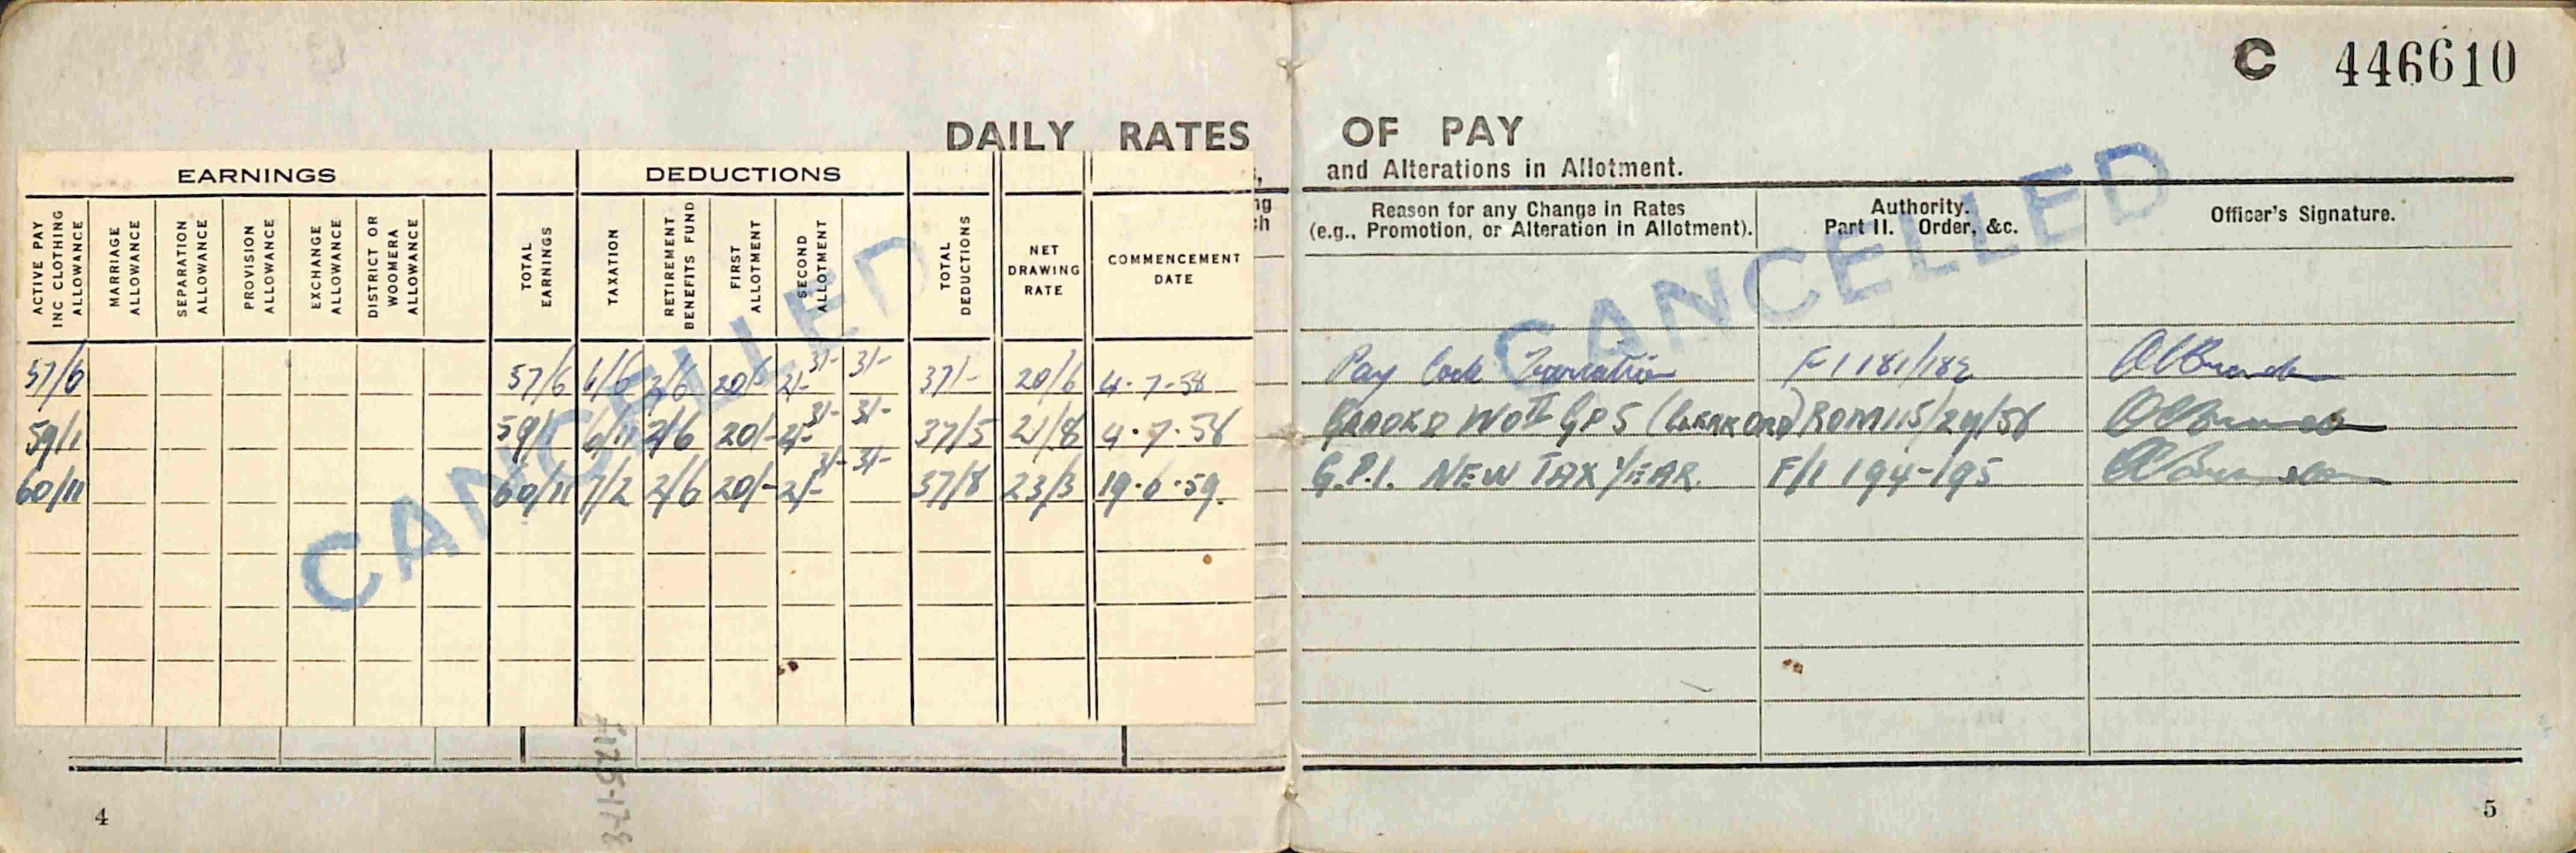 C 446610
DAILY RATES OF PAY
and Alterations in Allotment.
EARNINGS
DEDUCTIONS
ACTIVE PAY INC CLOTHING ALLOWANCE
MARRIAGE ALLOWANCE
SEPARATION ALLOWANCE
PROVISION ALLOWANCE
EXCHANGE ALLOWANCE
DISTRICT OR WOOMERA ALLOWANCE
TOTAL EARNINGS
TAXATION
RETIREMENT BENEFITS FUND
FIRST ALLOTMENT
SECOND ALLOTMENT
TOTAL DEDUCTIONS
NET DRAWING RATE
COMMENCEMENT DATE
Reason for any Change in Rates
(e.g., Promotion, or Alteration in Allotment).
Authority.
Part II. Order, &c.
Officer's Signature.
57/6 57/6 6/6 2/6 20/- 2/- 3/- 3/- 37/- 20/6 4.7.58 Pay F1181/182
59/1 59/1 6/11 2/6 20/- 2/- 3/- 3/- 37/5 21/8 4.7.58 GRADED WOII GP5 ROM115/24/58
60/11 60/11 7/2 2/6 20/- 2/- 3/- 3/- 37/8 23/3 19.6.59. G.P.I. NEW TAX YEAR. F/1 194-195
CANCELLED
CANCELLED
4
5